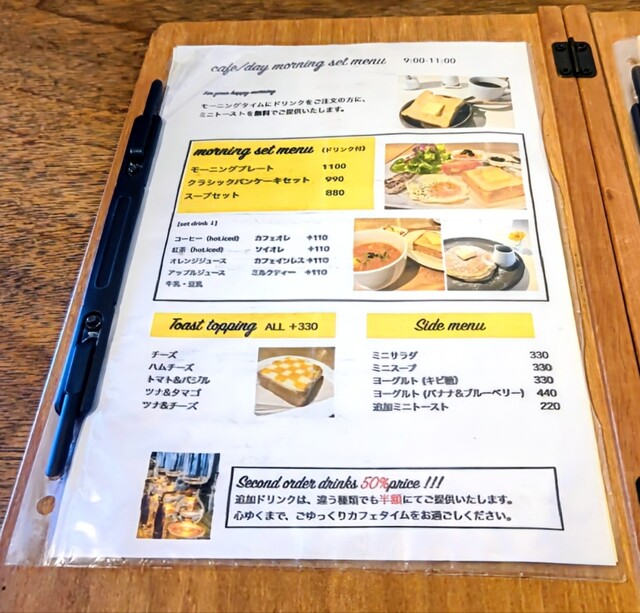 cafe/day morning set menu 9:00-11:00
For your happy morning
モーニングタイムにドリンクをご注文の方に、
ミニトーストを無料でご提供いたします。
morning set menu (ドリンク付)
モーニングプレート 1100
クラシックパンケーキセット 990
スープセット 880
[set drink ↓]
コーヒー (hot.iced) カフェオレ +110
紅茶 (hot.iced) ソイオレ +110
オレンジジュース カフェインレス +110
アップルジュース ミルクティー +110
牛乳・豆乳
Toast topping ALL +330
チーズ
ハムチーズ
トマト&バジル
ツナ&タマゴ
ツナ&チーズ
Side menu
ミニサラダ 330
ミニスープ 330
ヨーグルト (キビ糖) 330
ヨーグルト (バナナ&ブルーベリー) 440
追加ミニトースト 220
Second order drinks 50%price !!!
追加ドリンクは、違う種類でも半額にてご提供いたします。
心ゆくまで、ごゆっくりカフェタイムをお過ごしください。